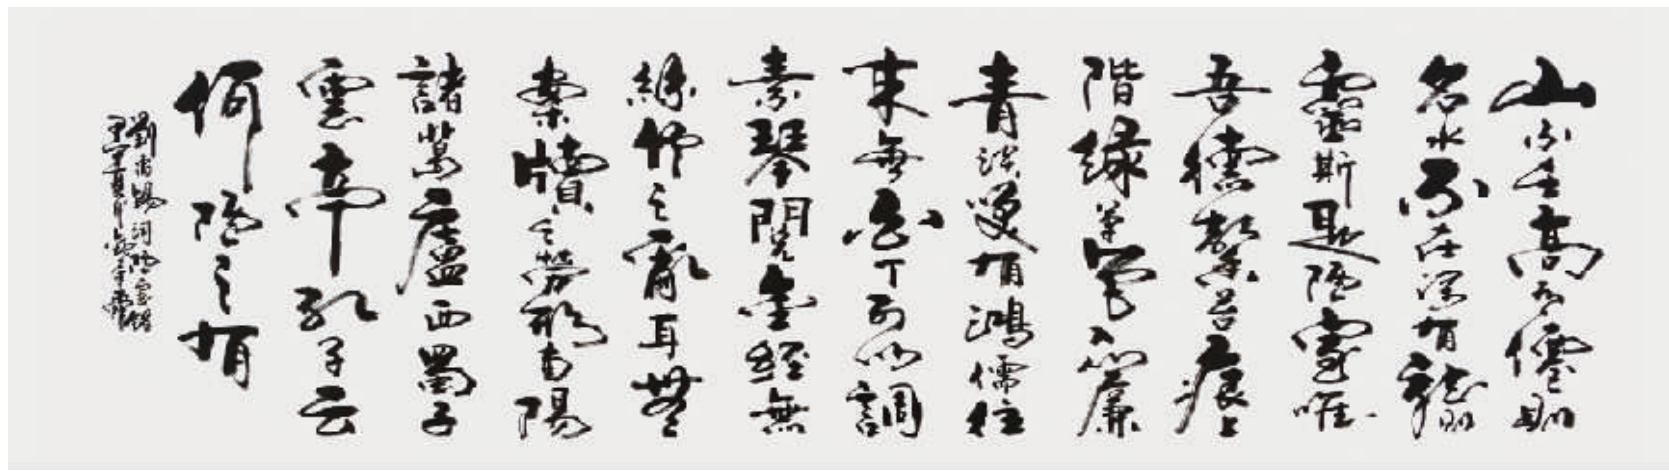 山不在高有僊則
名水不在深有龍則
靈斯是陋室唯
吾德馨苔痕上
階緑草色入簾
青談笑有鴻儒往
来無白丁可以調
素琴閲金經無
絲竹之亂耳無
案牘之勞形南陽
諸葛廬西蜀子
雲亭孔子云
何陋之有
劉禹錫詞陋室銘